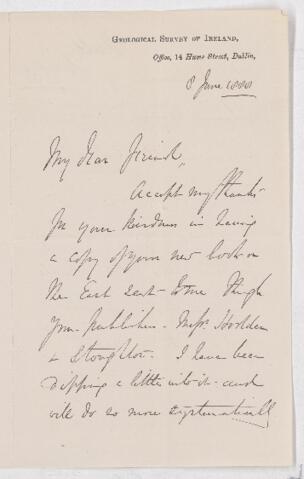 GEOLOGICAL SURVEY OF IRELAND,
Office, 14 Hume Street, Dublin,
8 June 1888
My Dear Friend,
Accept my thanks
for your kindness in having
a copy of your new book on
The East sent to me through
your publishers Messrs. Hodder
& Stoughton. I have been
dipping a little into it and
will do so more systematically